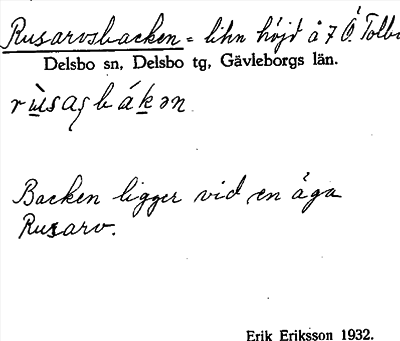 Rusarvsbacken = liten höjd å 7 Ö. Tolb
Delsbo sn, Delsbo tg, Gävleborgs län.
rùsaʂbákən
Backen ligger vid en äga
Rusarv.
Erik Eriksson 1932.